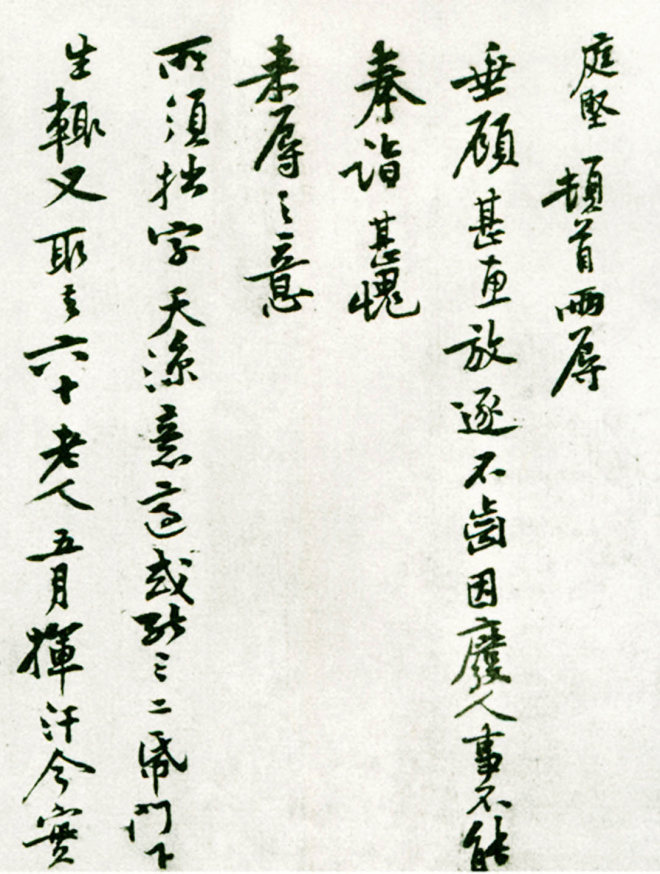 庭堅頓首兩辱
垂顧甚惠放逐不齒因廢人事不能
奉詣甚愧
来辱之意
所須拙字天涼意適或能三二帋門下
生輒又取去六十老人五月揮汗今實